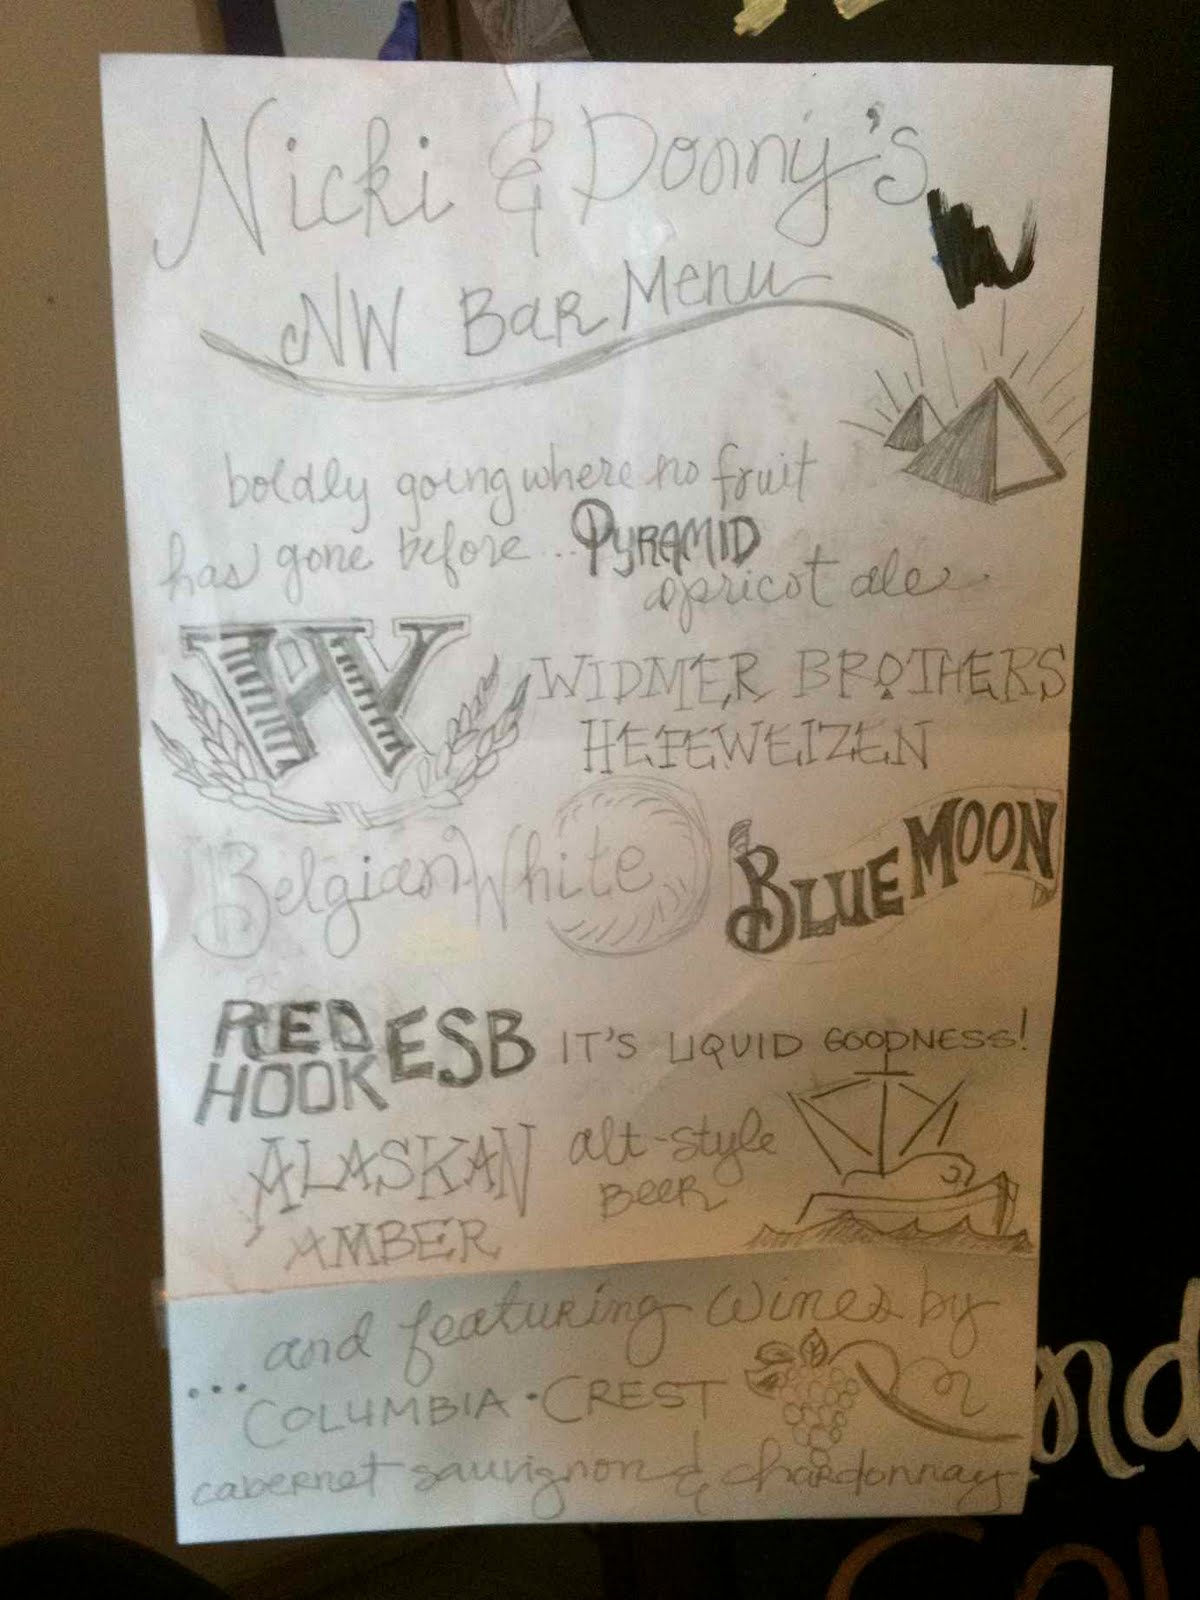 Nicki & Donny's
NW Bar Menu
boldly going where no fruit
has gone before... PYRAMID
apricot ale
W
WIDMER BROTHERS
HEFEWEIZEN
Belgian White
BLUE MOON
RED HOOK ESB IT'S LIQUID GOODNESS!
ALASKAN AMBER
alt-style BEER
...and featuring wines by
COLUMBIA • CREST
cabernet sauvignon & chardonnay
nd
Col